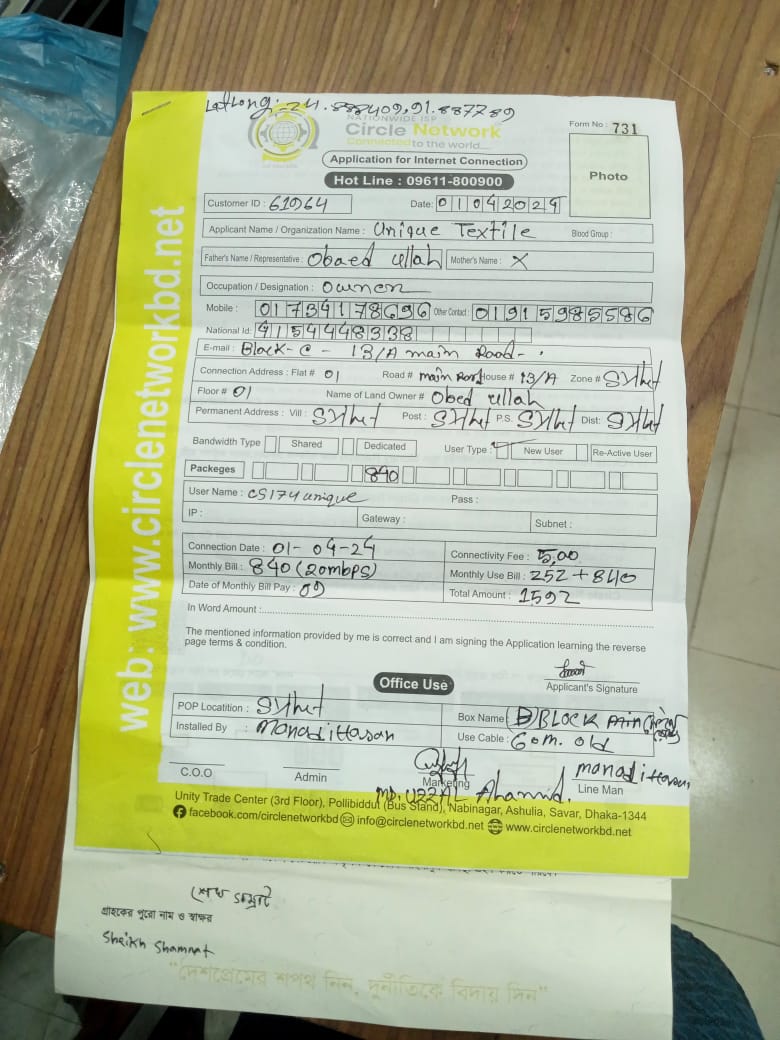 LatLong:-24.888409,91.887789
NATIONWIDE ISP
Circle Network
Connected to the world....
Form No : 731
Photo
Application for Internet Connection
Hot Line : 09611-800900
Customer ID : 61964
Date: 01042024
Applicant Name / Organization Name : Unique Textile
Blood Group :
Father's Name / Representative : Obaed ullah
Mother's Name : X
Occupation / Designation : owner
Mobile : 01734178696
Other Contact : 01915985586
National Id: 4154448338
E-mail : Block-C- 13/A main Road-
Connection Address : Flat # 01 Road # main Road House # 13/A Zone # Sylhet
Floor # 01 Name of Land Owner # Obed ullah
Permanent Address : Vill : Sylhet Post : Sylhet P.S. Sylhet Dist: Sylhet
Bandwidth Type Shared Dedicated User Type : New User Re-Active User
Packeges 840
User Name : CS174unique Pass :
IP : Gateway : Subnet :
Connection Date : 01-04-24 Connectivity Fee : 5,00
Monthly Bill : 840 (20mbps) Monthly Use Bill : 252 + 840
Date of Monthly Bill Pay : Total Amount : 1592
In Word Amount :
The mentioned information provided by me is correct and I am signing the Application learning the reverse
page terms & condition.
Applicant's Signature
Office Use
POP Locatition : Sylhet Box Name : BLOCK
Installed By : Use Cable : 60m. old
C.O.O Admin Marketing Line Man
Md. UZZAL Ahamid.
Unity Trade Center (3rd Floor), Pollibiddut (Bus Stand), Nabinagar, Ashulia, Savar, Dhaka-1344
facebook.com/circlenetworkbd info@circlenetworkbd.net www.circlenetworkbd.net
web: www.circlenetworkbd.net
শেখ সম্রাট
গ্রাহকের পুরো নাম ও স্বাক্ষর
Sheikh Shamrat
"দেশপ্রেমের শপথ নিন, দুর্নীতিকে বিদায় দিন"